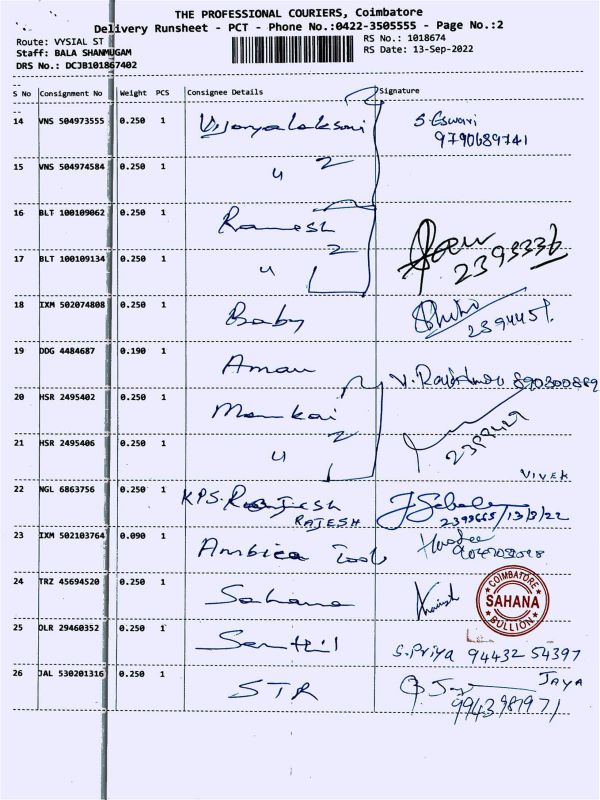 THE PROFESSIONAL COURIERS, Coimbatore
Delivery Runsheet - PCT - Phone No.:0422-3505555 - Page No.:2
Route: VYSIAL ST RS No.: 1018674
Staff: BALA SHANMUGAM RS Date: 13-Sep-2022
DRS No.: DCJB101867402
S No Consignment No Weight PCS Consignee Details Signature
14 VNS 504973555 0.250 1 Vijayalaksmi S. Eswari
9790689741
15 VNS 504974584 0.250 1 " 2
16 BLT 100109062 0.250 1 Ramesh
17 BLT 100109134 0.250 1 " 2 2393336
18 IXM 502074808 0.250 1 Baby
19 DDG 4484687 0.190 1 Aman
20 HSR 2495402 0.250 1
21 HSR 2495406 0.250 1 " 2
VIVEK
22 NGL 6863756 0.250 1 KPS. Rajesh
RAJESH 2393665/13/9/22
23 IXM 502103764 0.090 1 Ambica
24 TRZ 45694520 0.250 1 Sahana COIMBATORE SAHANA BULLION
25 DLR 29460352 0.250 1 Senthil
S. Priya 94432 54397
26 JAL 530201316 0.250 1 STR JAYA
9943987971